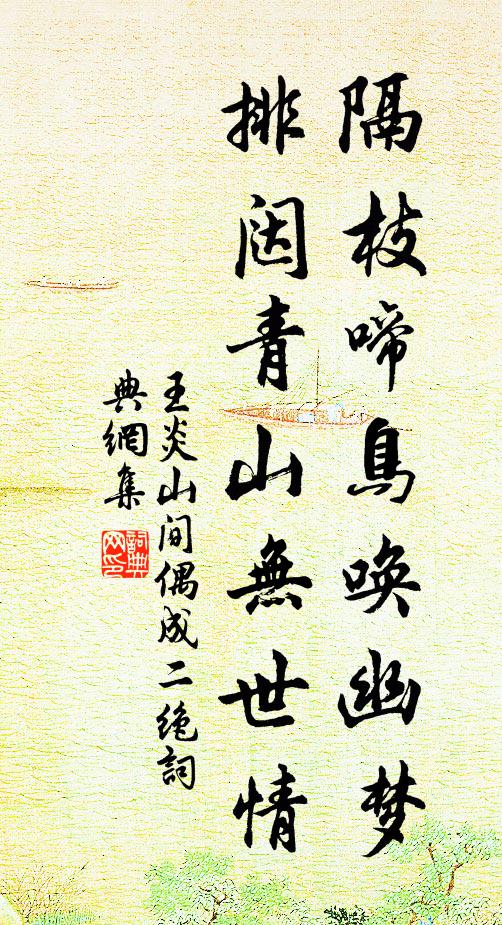 隔枝啼鳥喚幽梦
排闼青山無世情
王炎山间偶成二绝詞
典網集
詞典
网印